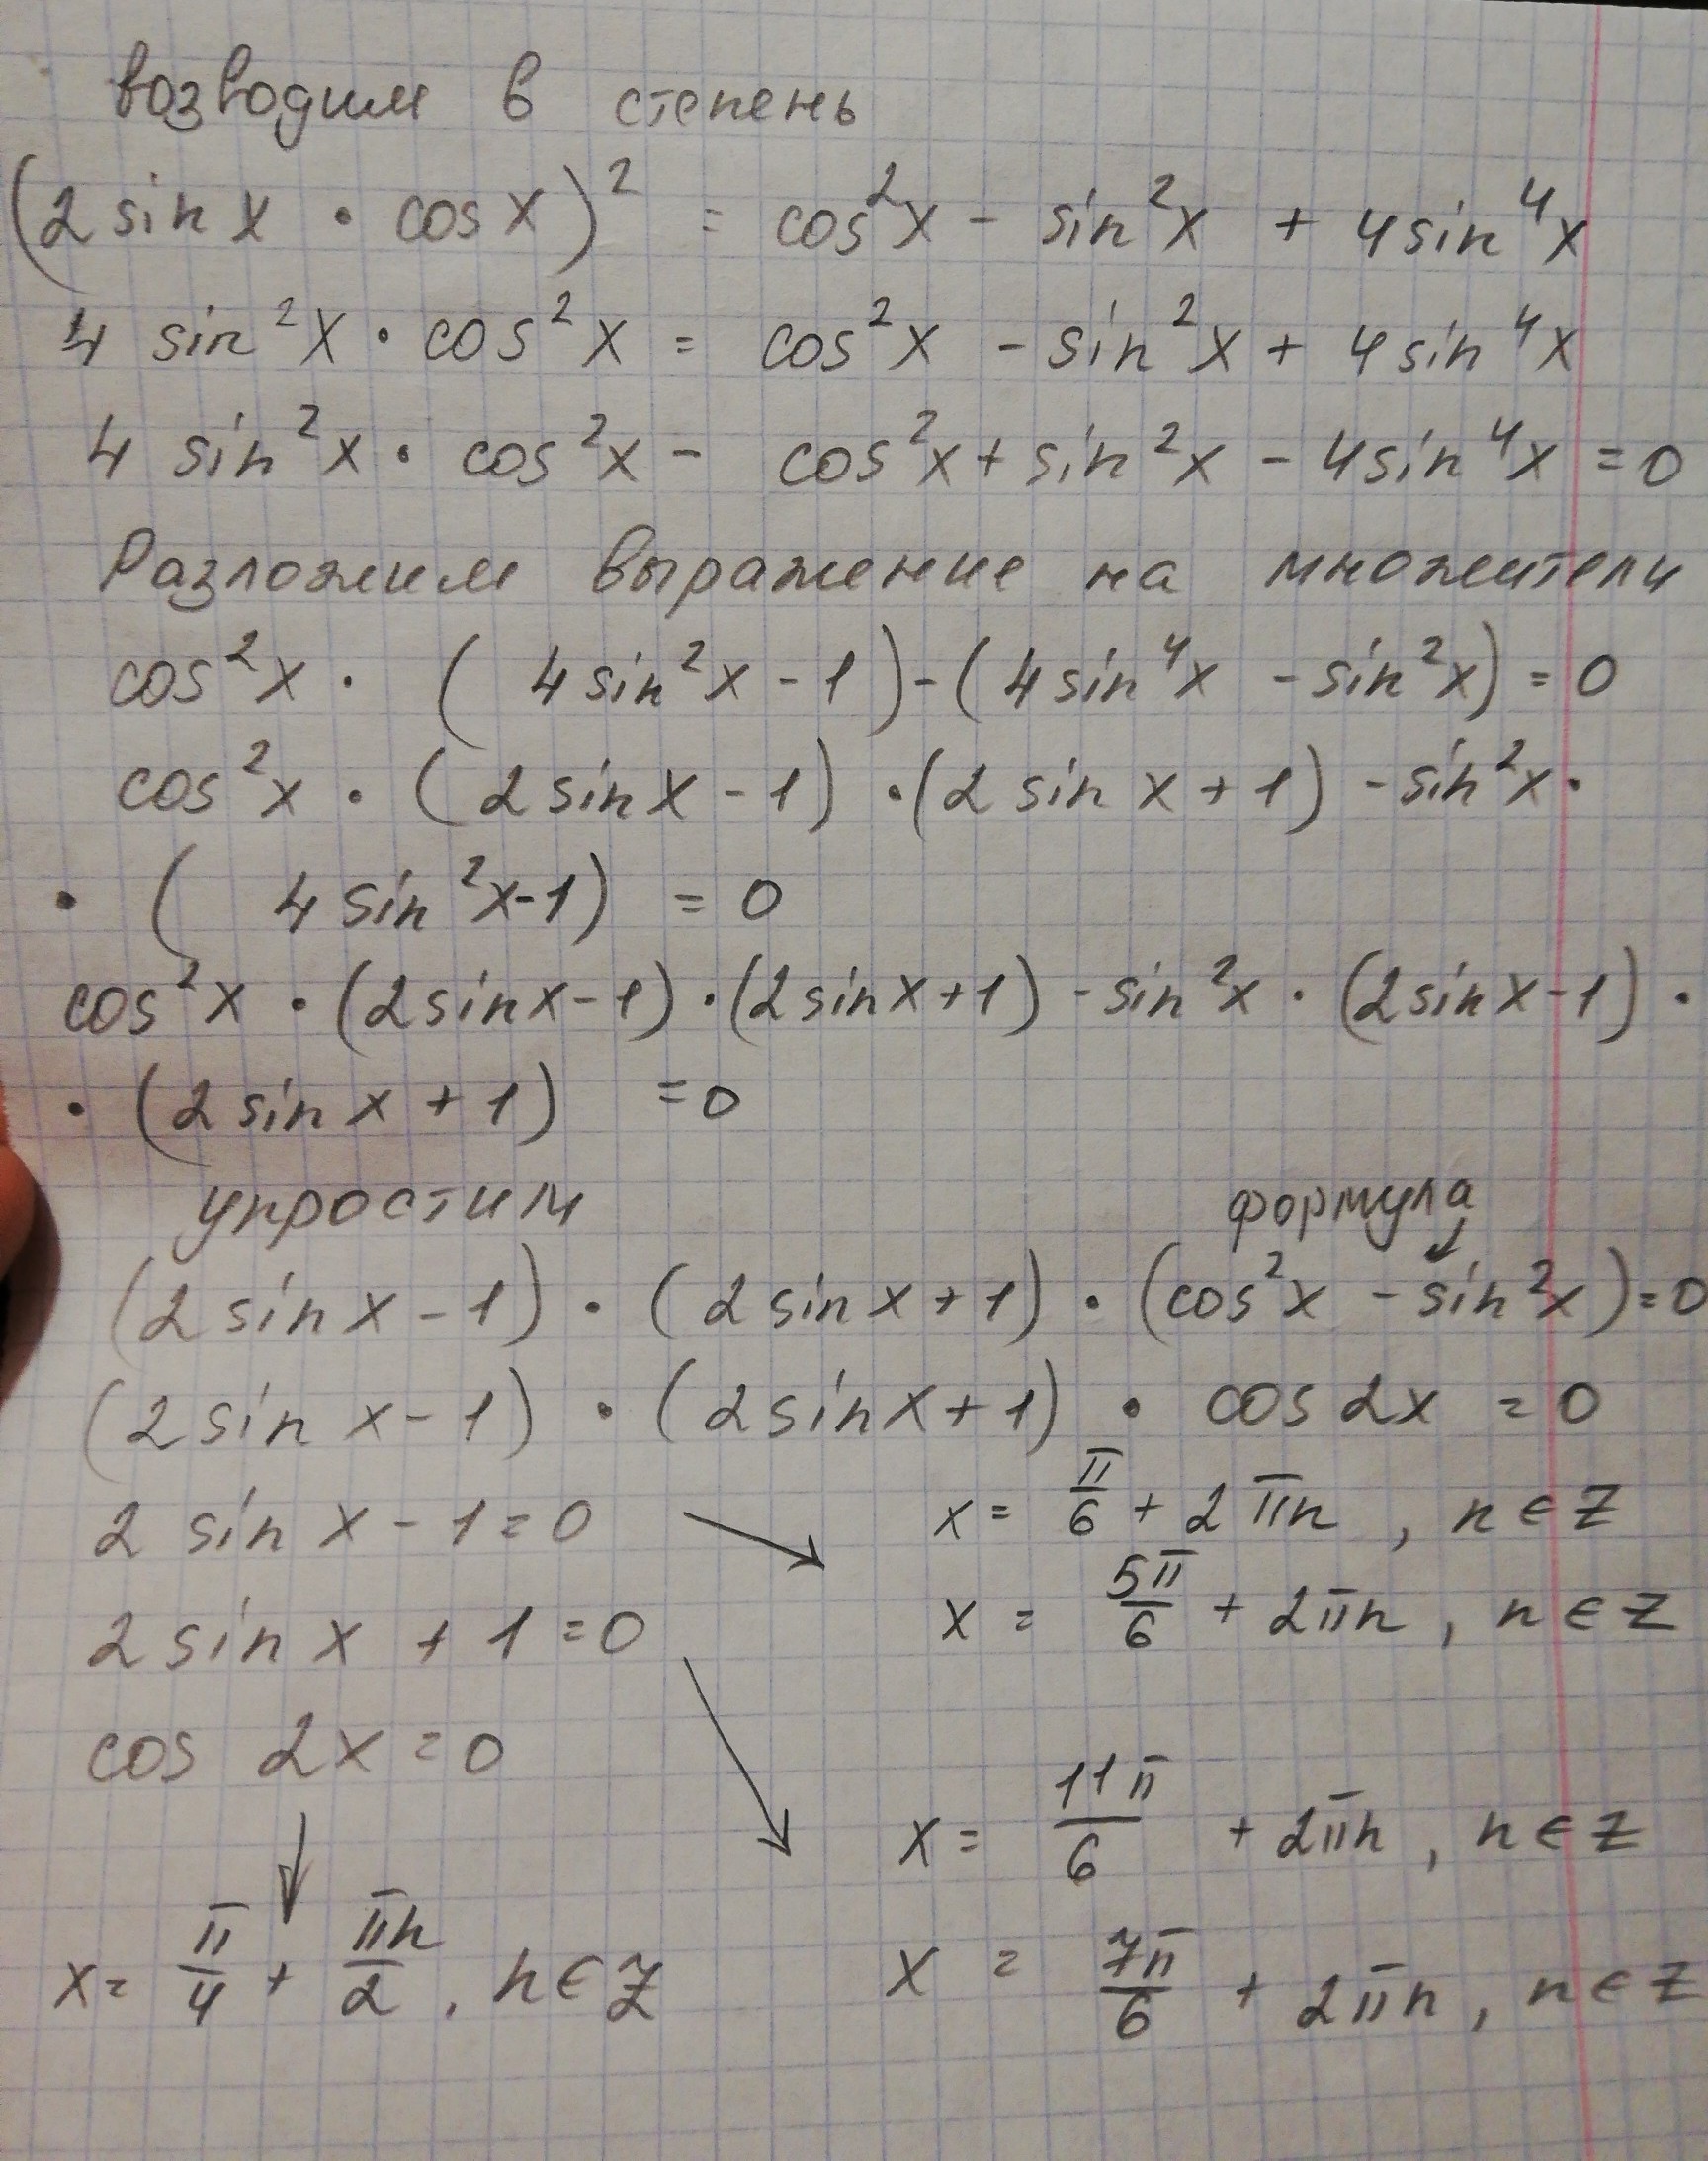 возводим в степень
(2 sin x · cos x)² = cos²x - sin²x + 4sin⁴x
4 sin²x · cos²x = cos²x - sin²x + 4sin⁴x
4 sin²x · cos²x - cos²x + sin²x - 4sin⁴x = 0
Разложим выражение на множители
cos²x · (4sin²x - 1) - (4sin⁴x - sin²x) = 0
cos²x · (2sin x - 1) · (2 sin x + 1) - sin²x ·
· (4 sin²x-1) = 0
cos²x · (2sinx-1) · (2sinx+1) - sin²x · (2sinx-1) ·
· (2 sin x + 1) = 0
упростим
формула
(2 sin x - 1) · (2 sin x + 1) · (cos²x - sin²x) = 0
(2 sin x - 1) · (2sinx + 1) · cos 2x = 0
2 sin x - 1 = 0 → x = π/6 + 2πn, n ∈ Z
x = 5π/6 + 2πn, n ∈ Z
2 sin x + 1 = 0
cos 2x = 0
x = 11π/6 + 2πn, n ∈ Z
x = π/4 + πn/2, n ∈ Z
x = 7π/6 + 2πn, n ∈ Z